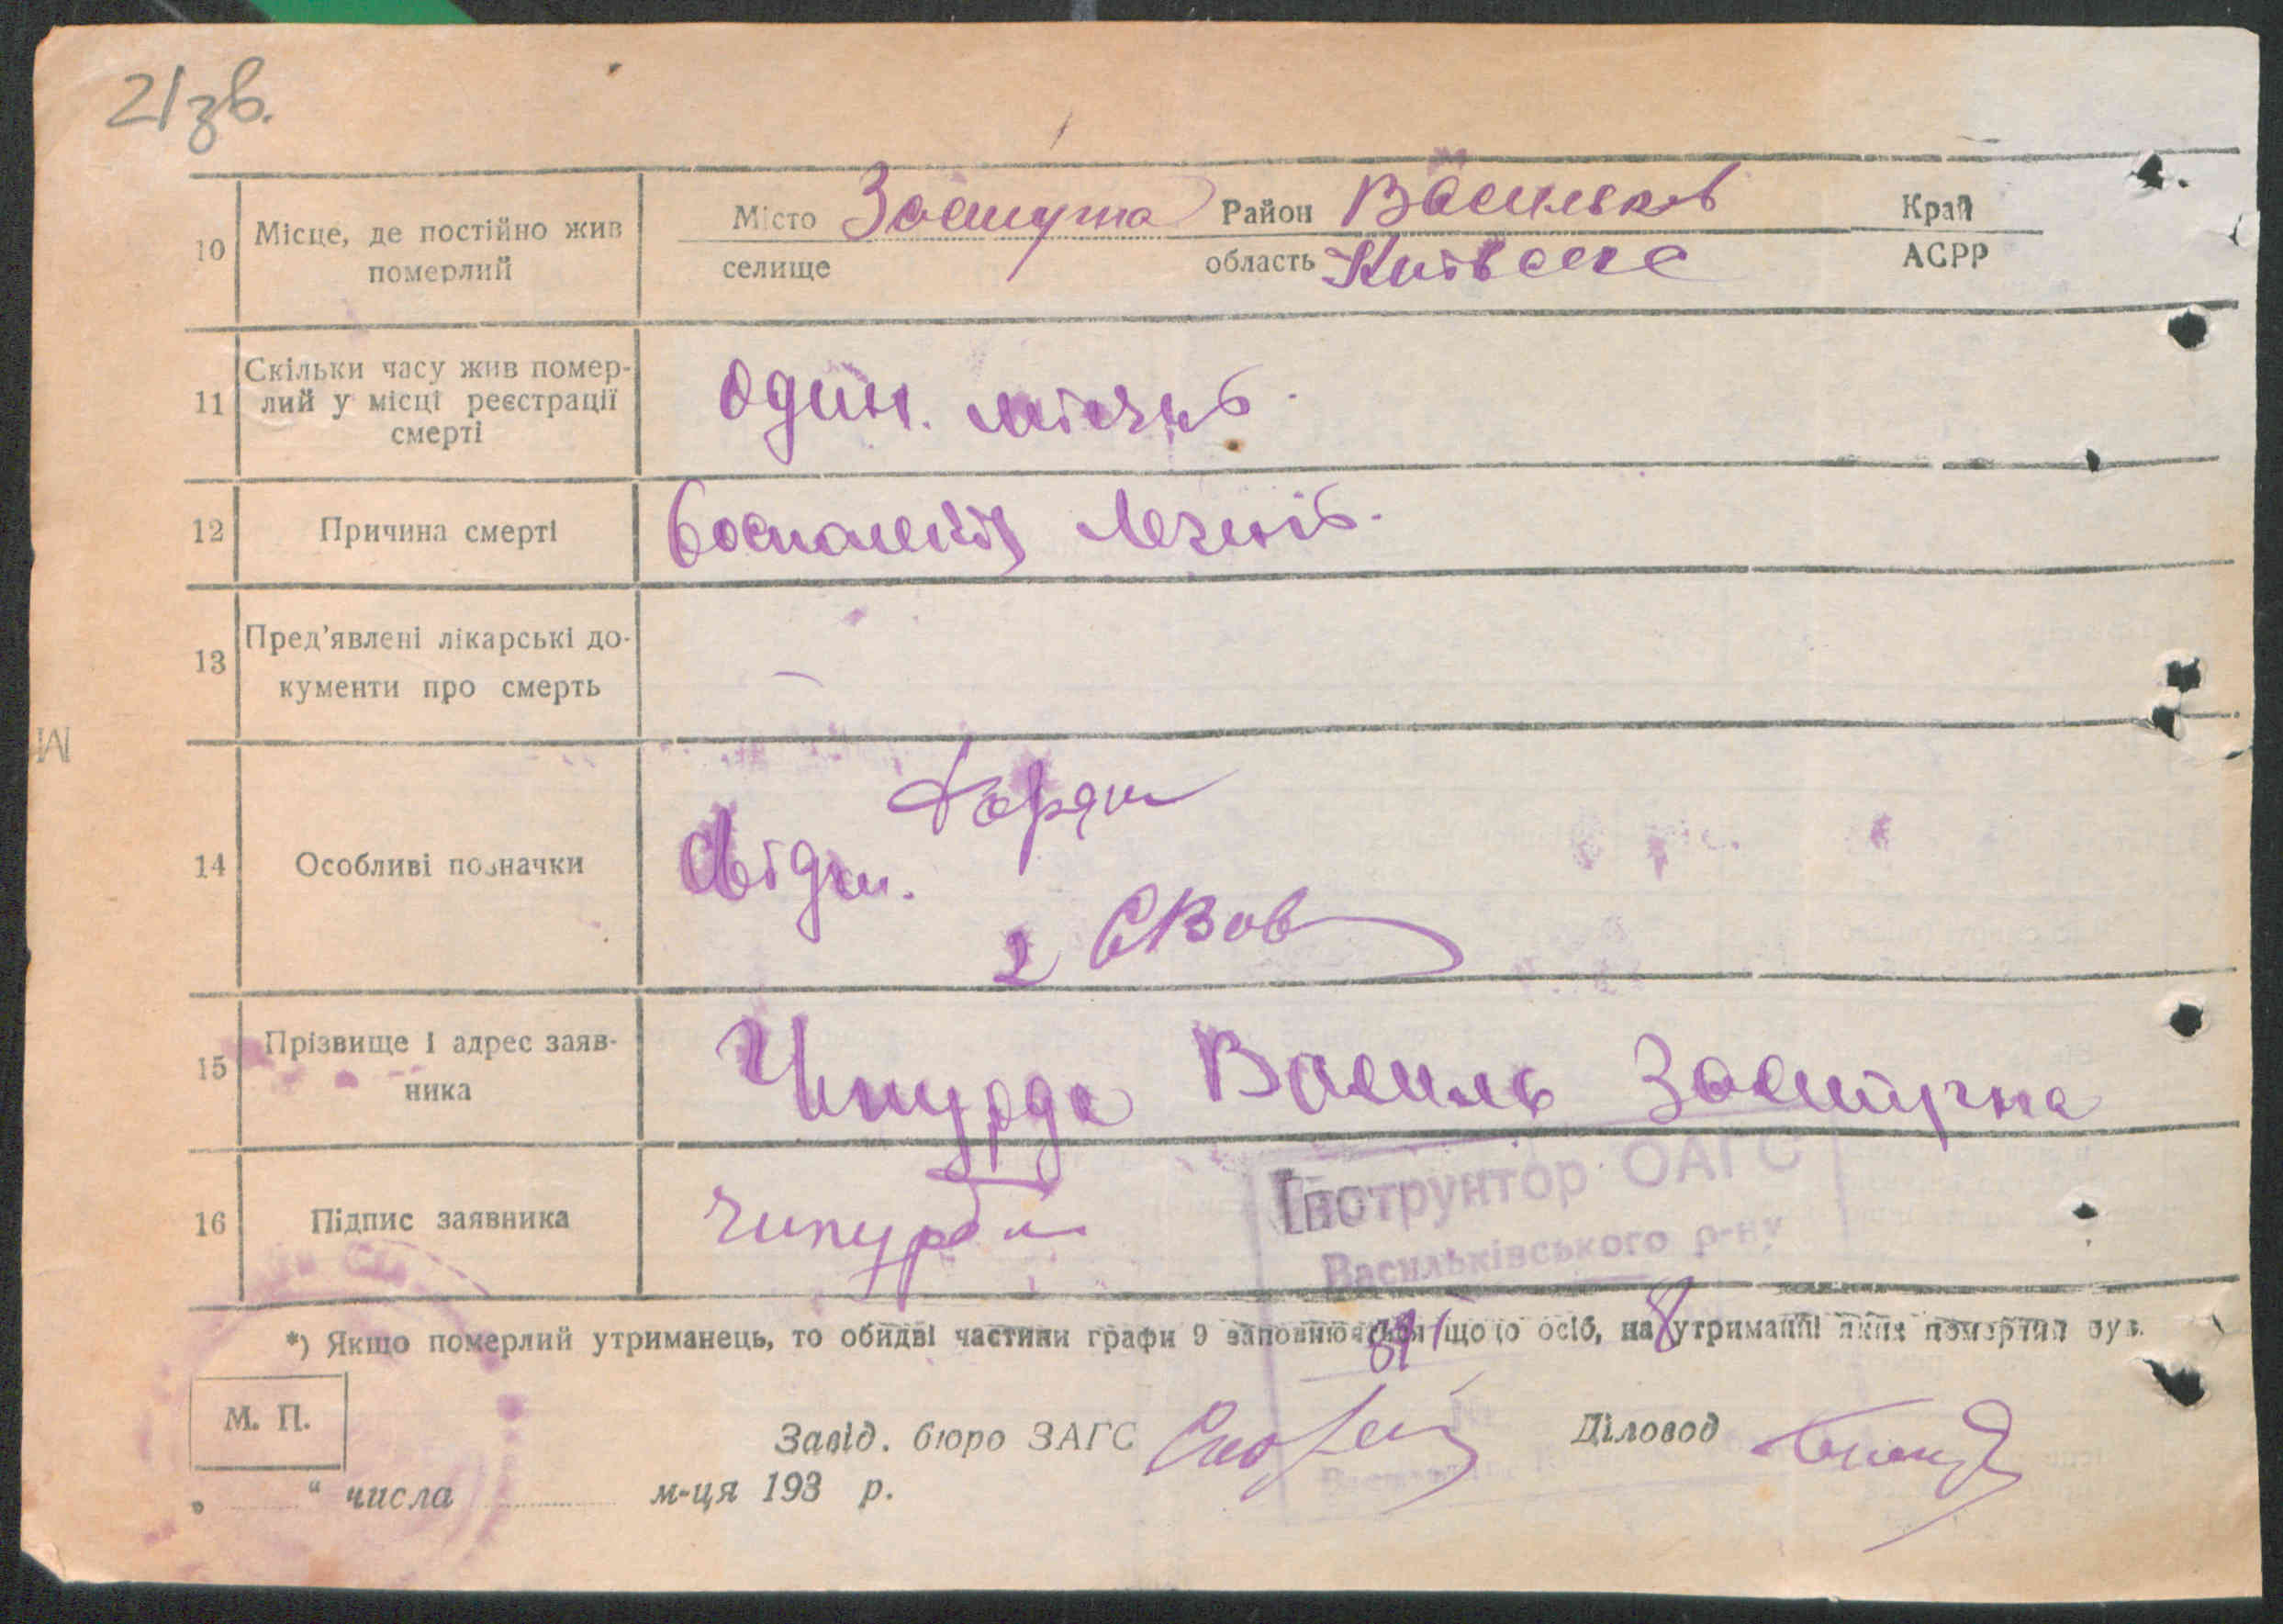 21зв.
10 Місце, де постійно жив померлий
Місто Застугна Район Васильков Край
селище область Київська АСРР
11 Скільки часу жив помер-
лий у місці реєстрації
смерті
один. місяць.
12 Причина смерті
воспаленія легенів.
13 Пред'явлені лікарські до-
кументи про смерть
—
14 Особливі позначки
15 Прізвище і адрес заяв-
ника
Чипурда Василь Застугна
16 Підпис заявника
Чипурда
Інструктор ОАГС
Васильківського р-ну
*) Якщо померлий утриманець, то обидві частини графи 9 заповнюються щодо осіб, на утриманні яких померлий був.
М. П.
Завід. бюро ЗАГС
Діловод
„ “ числа м-ця 193 р.